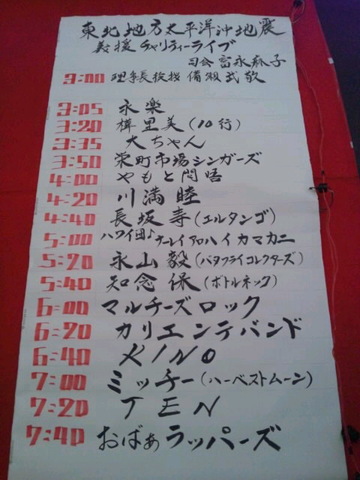 東北地方太平洋沖地震
義援チャリティーライブ
司会 富永森子
3:00 理事長挨拶 備瀬武敬
3:05 永楽
3:20 樺里美(10行)
3:35 大ちゃん
3:50 栄町市場シンガーズ
4:00 やもと問悟
4:20 川満睦
4:40 長坂寿(エルタンゴ)
5:00 ハワイ団♪ ナーレイアロハイカマカニ
5:20 永山毅(バタフライコレクターズ)
5:40 知念保(ボトルネック)
6:00 マルチーズロック
6:20 カリエンテバンド
6:40 KINO
7:00 ミッチー(ハーベストムーン)
7:20 TEN
7:40 おばぁラッパーズ